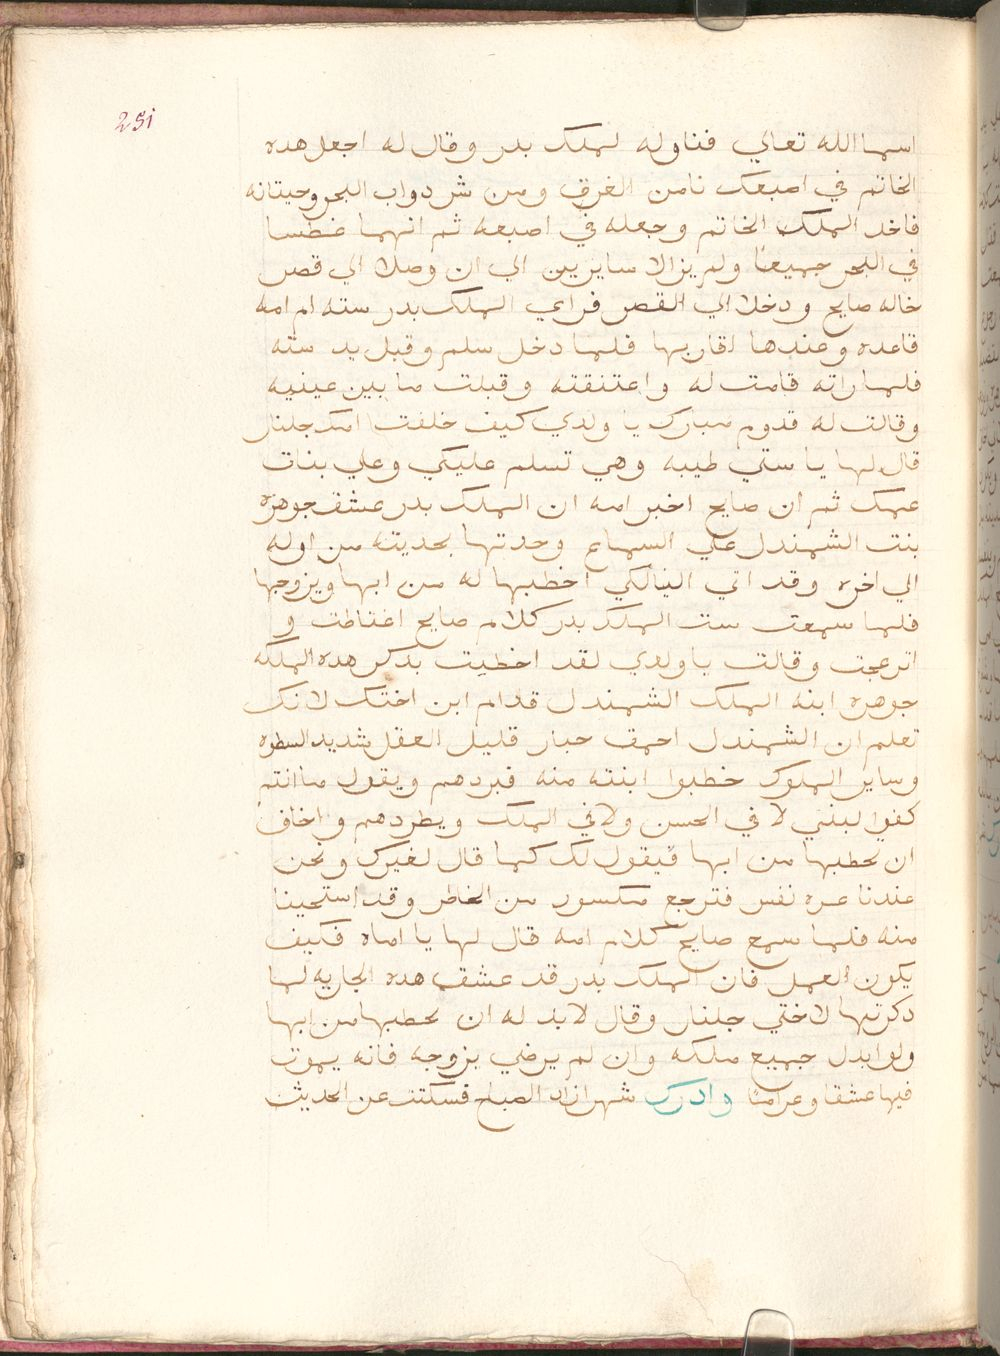 251
اسما الله تعالي فناوله لملك بدر وقال له اجعل هده
الخاتم في اصبعك تامن الغرق ومن شر دواب البحر وحيتانه
فاخد الملك الخاتم وجعله في اصبعه ثم انهما غطسا
في البحر جميعا ولم يزالا سايرين الي ان وصلا الي قصر
خاله صايح ودخل الي القصر فراي الملك بدر سته ام امه
قاعده وعندها اقاربها فلما دخل سلم وقبل يد سته
فلما راته قامت له واعتنقته وقبلت ما بين عينيه
وقالت له قدوم مبارك يا ولدي كيف خلفت امك جلنار
قال لها يا ستي طيبه وهي تسلم عليكي وعلي بنات
عمك ثم ان صايح اخبر امه ان الملك بدر عشق جوهره
بنت الشمندل علي السماع وحدتها بحديته من اوله
الي اخره وقد اتي اليالكي اخطبها له من ابها ويزوجها
فلما سمعت ست الملك بدر كلام صايح اغتاظت و
انزعجت وقالت يا ولدي لقد اخطيت بدكر هده الملكه
جوهره ابنه الملك الشمندل قدام ابن اختك لانك
تعلم ان الشمندل احمق جبار قليل العقل شديد السطوه
وساير الملوك خطبوا ابنته منه فيردهم ويقول ما انتم
كفوا لبنتي لا في الحسن ولا في الملك ويطردهم واخاف
ان تخطبها من ابها فيقول لك كما قال لغيرك ونحن
عندنا عزه نفس فترجع مكسور من الخاطر وقد استحينا
منه فلما سمع صايح كلام امه قال لها يا اماه فكيف
يكون العمل فان الملك بدر قد عشق هده الجاريه لما
دكرتها لاختي جلنار وقال لابد له ان يخطبها من ابها
ولو ابدل جميع ملكه وان لم يرضي يزوجه فانه يموت
فيها عشقا وغراما وادرك شهرازاد الصباح فسكتت عن الحديث